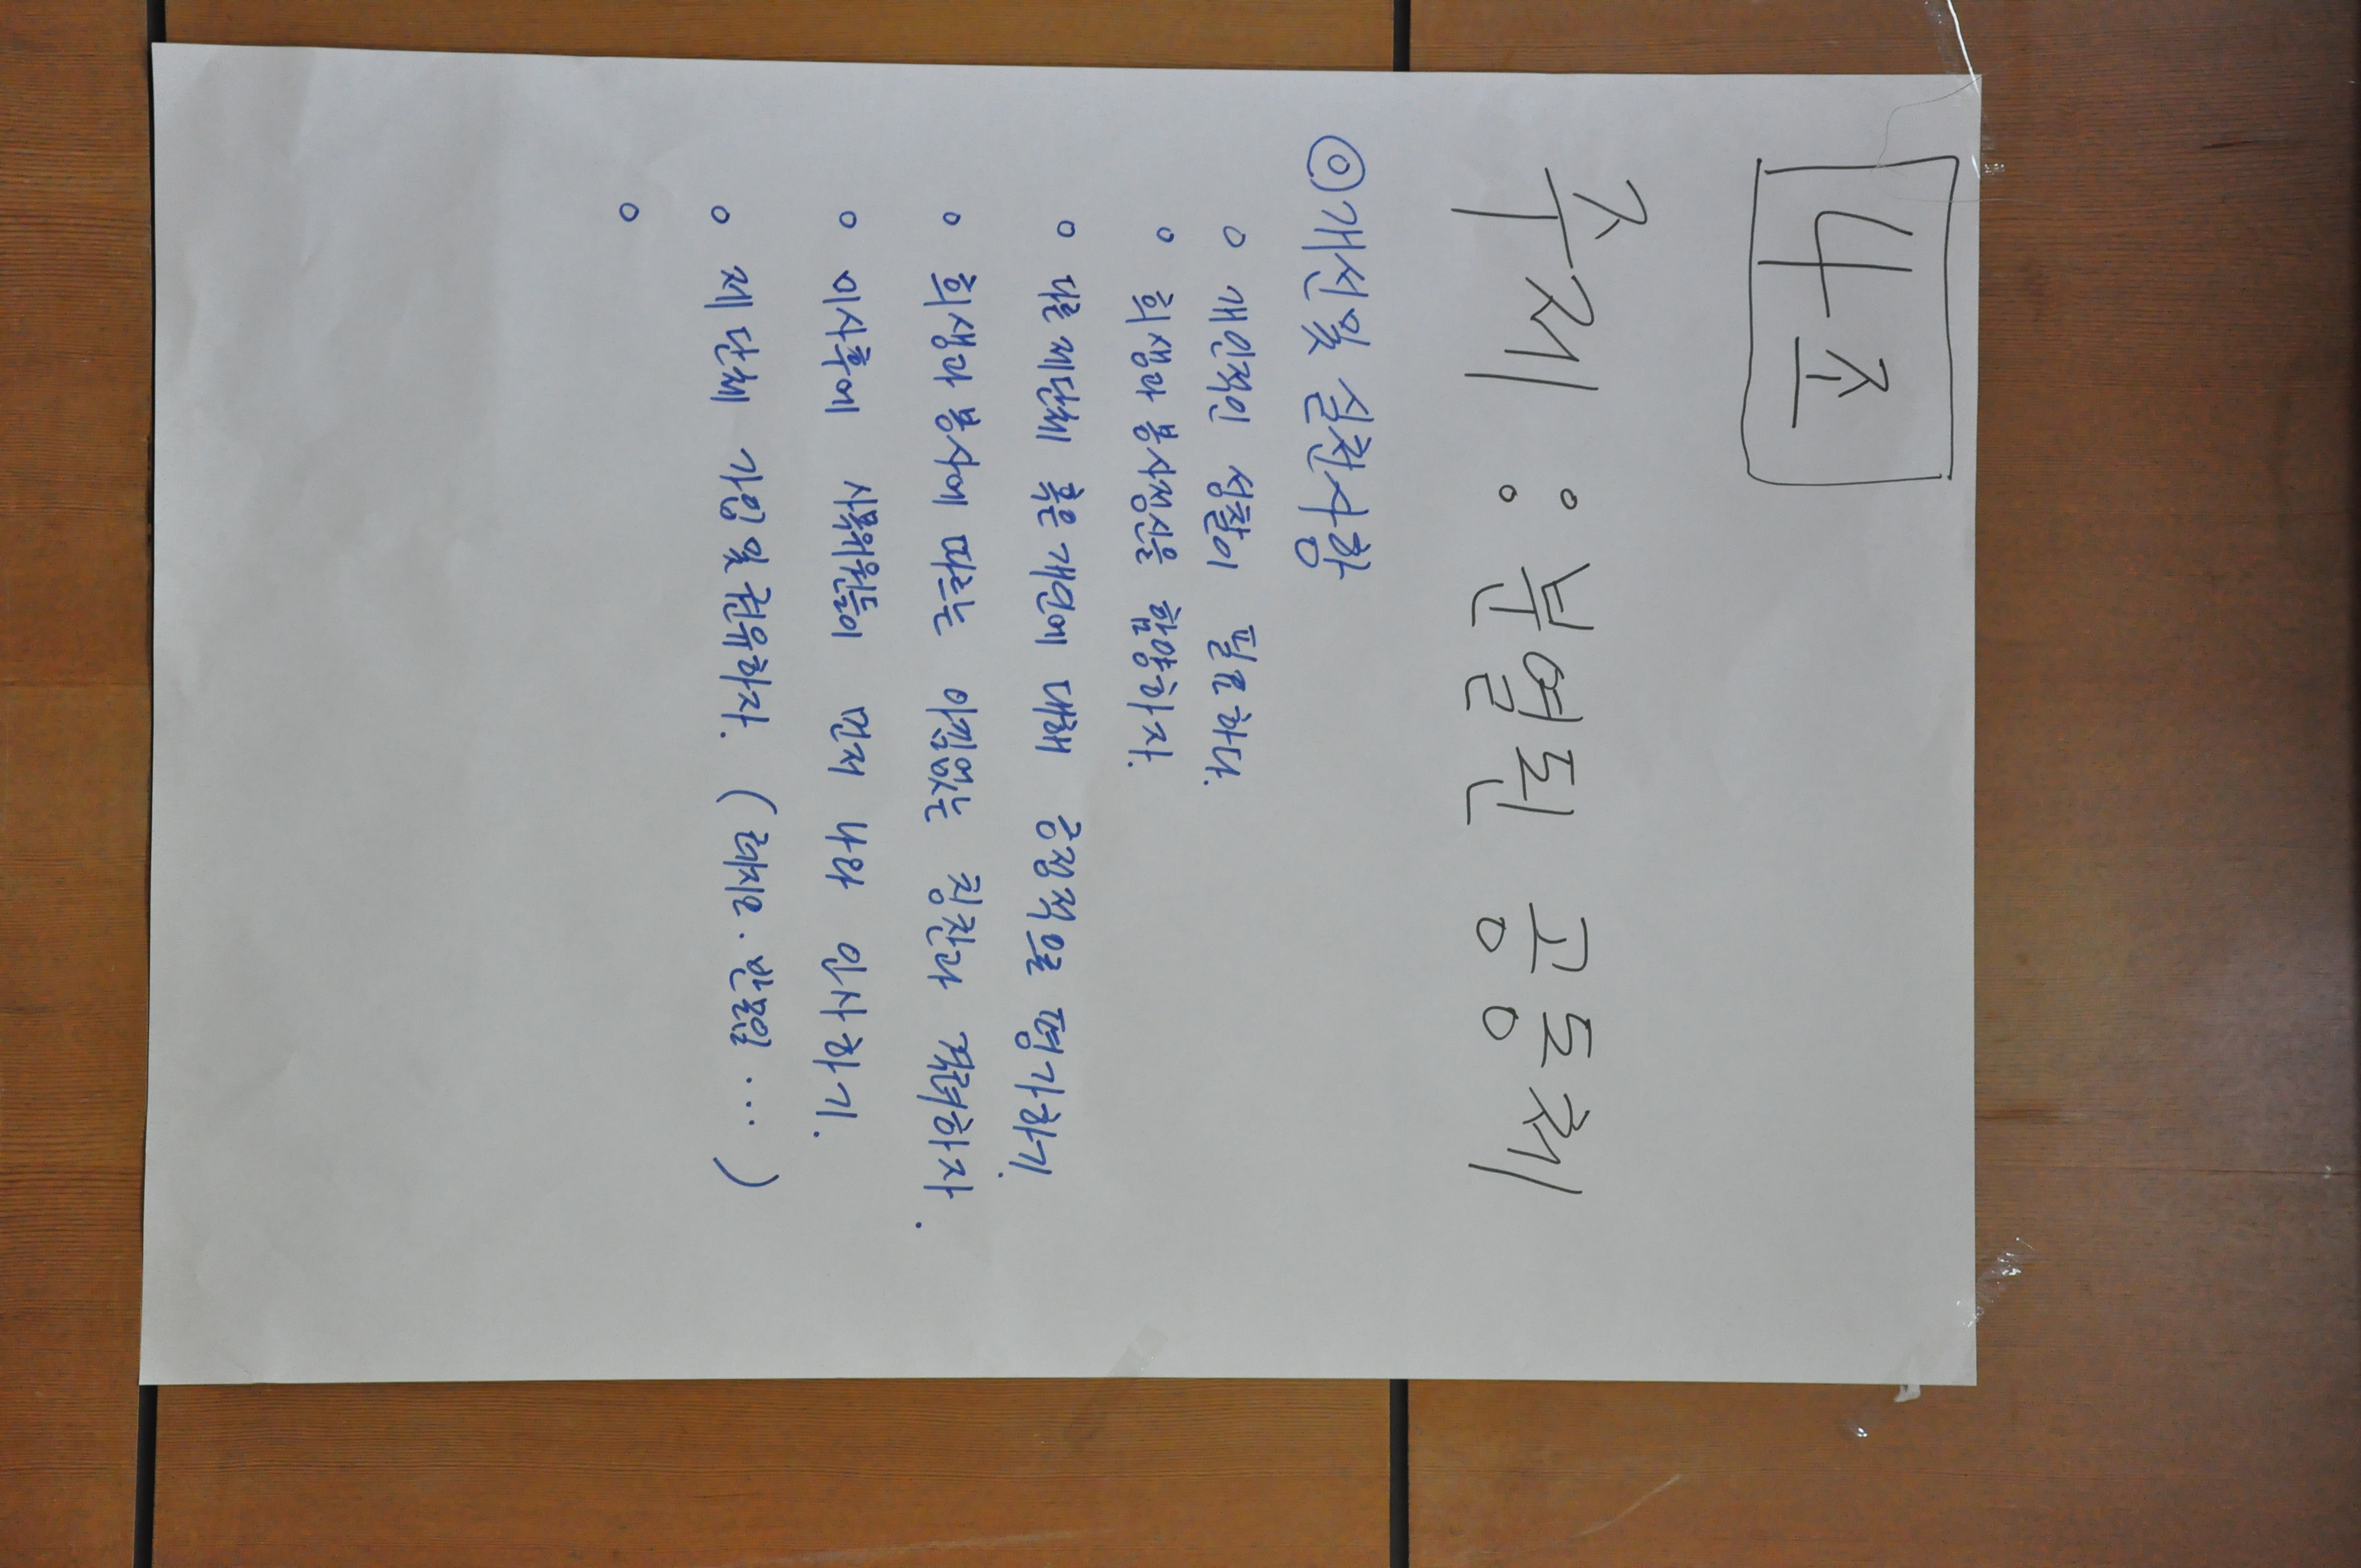 4조
주제 : 분열된 공동체
◎ 개선 및 실천사항
○ 개인적인 성찰이 필요하다.
○ 희생과 봉사정신을 함양하자.
○ 다른 제단체 혹은 개인에 대해 긍정적으로 평가하기.
○ 희생과 봉사에 따르는 아낌없는 칭찬과 격려하자.
○ 미사후에 사목위원들이 먼저 나와 인사하기.
○ 제단체 가입 및 권유하자. (레지오. 반모임 ... )
○